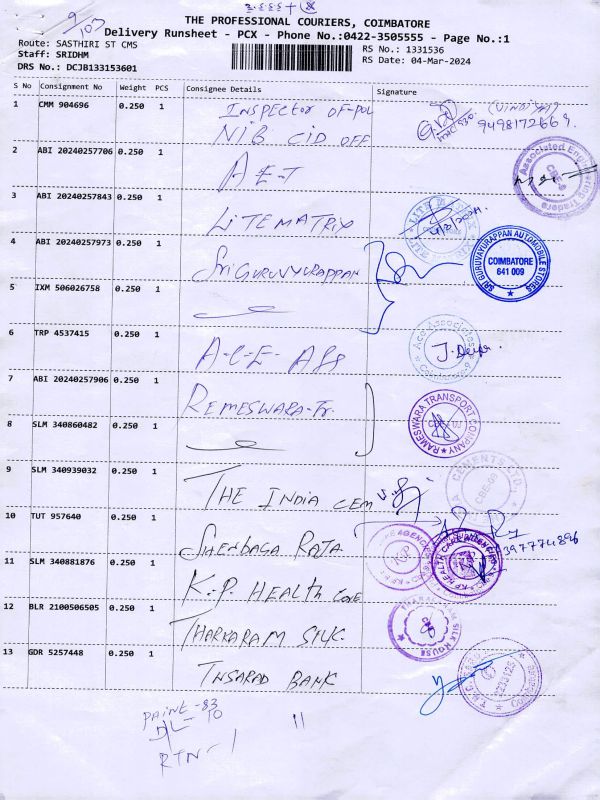 9/103
THE PROFESSIONAL COURIERS, COIMBATORE
Delivery Runsheet - PCX - Phone No.:0422-3505555 - Page No.:1
Route: SASTHIRI ST CMS
RS No.: 1331536
Staff: SRIDHM
RS Date: 04-Mar-2024
DRS No.: DCJB133153601
S No Consignment No Weight PCS Consignee Details Signature
1 CMM 904696 0.250 1 INSPECTOR OF-POL
NIB CID OFF
9498172669.
2 ABI 20240257706 0.250 1 A E-T
Associated Engineering Traders
3 ABI 20240257843 0.250 1 LITE MATRIX
4 ABI 20240257973 0.250 1 Sri GURUVYURAPPAN
SRI GURUVAYURAPPAN AUTOMOBILE STORES COIMBATORE 641 009
5 IXM 506026758 0.250 1
6 TRP 4537415 0.250 1 A-C-E- ASS
Ace Associates
7 ABI 20240257906 0.250 1 REMESWARA-Tr.
RAMESWARA TRANSPORT COMPANY
8 SLM 340860482 0.250 1
9 SLM 340939032 0.250 1 THE INDIA CEM
CEMENTS LTD.
10 TUT 957640 0.250 1 SHENBAGA RAJA
11 SLM 340881876 0.250 1 K.P. HEALTH CARE
12 BLR 2100506505 0.250 1 THARKARAM SILK.
SILK HOUSE
13 GDR 5257448 0.250 1 TNSARAD BANK
PAINE-83
DL-10
11
RTN-1